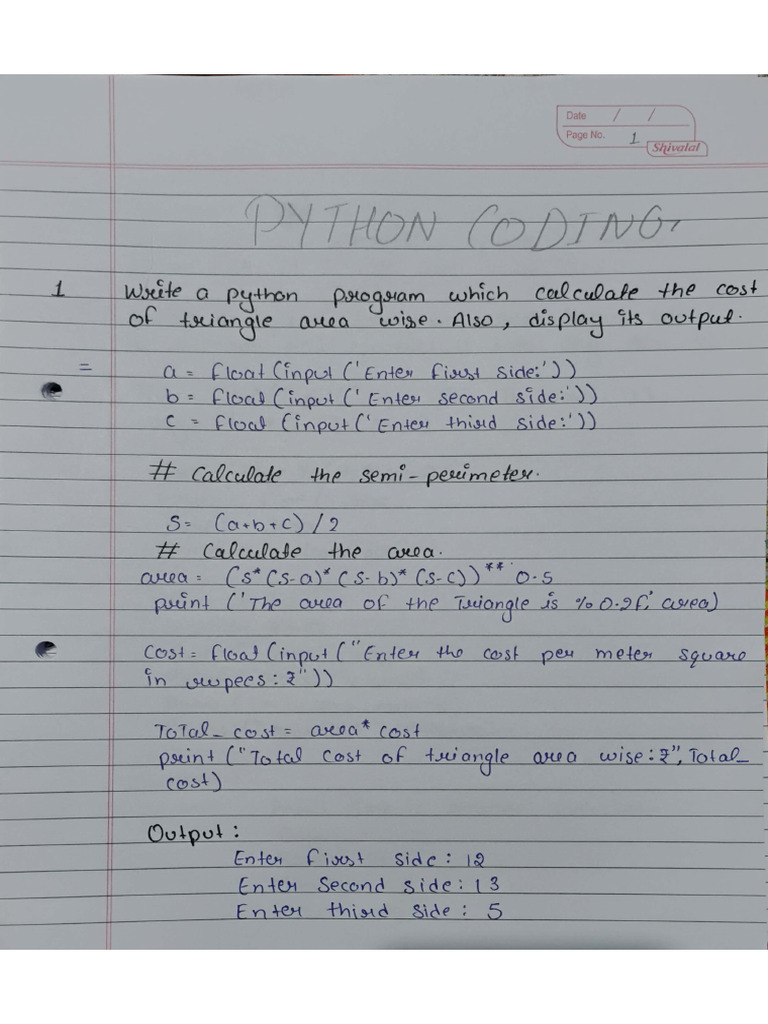 Date / /
Page No. 1
Shivalal
PYTHON CODING,
1 Write a python program which calculate the cost
of triangle area wise. Also, display its output.
= a = float (input ('Enter first side:'))
b = float (input ('Enter second side:'))
c = float (input ('Enter third side:'))
# Calculate the semi-perimeter.
S = (a+b+c) / 2
# Calculate the area.
area = (s*(s-a)*(s-b)*(s-c)) ** 0.5
print ('The area of the Triangle is %0.2f,' area)
Cost = float (input ("Enter the cost per meter square
in rupees: ₹"))
Total_cost = area* cost
print ("Total cost of triangle area wise: ₹", Total_
cost)
Output:
Enter first side: 12
Enter Second side: 13
Enter third side: 5